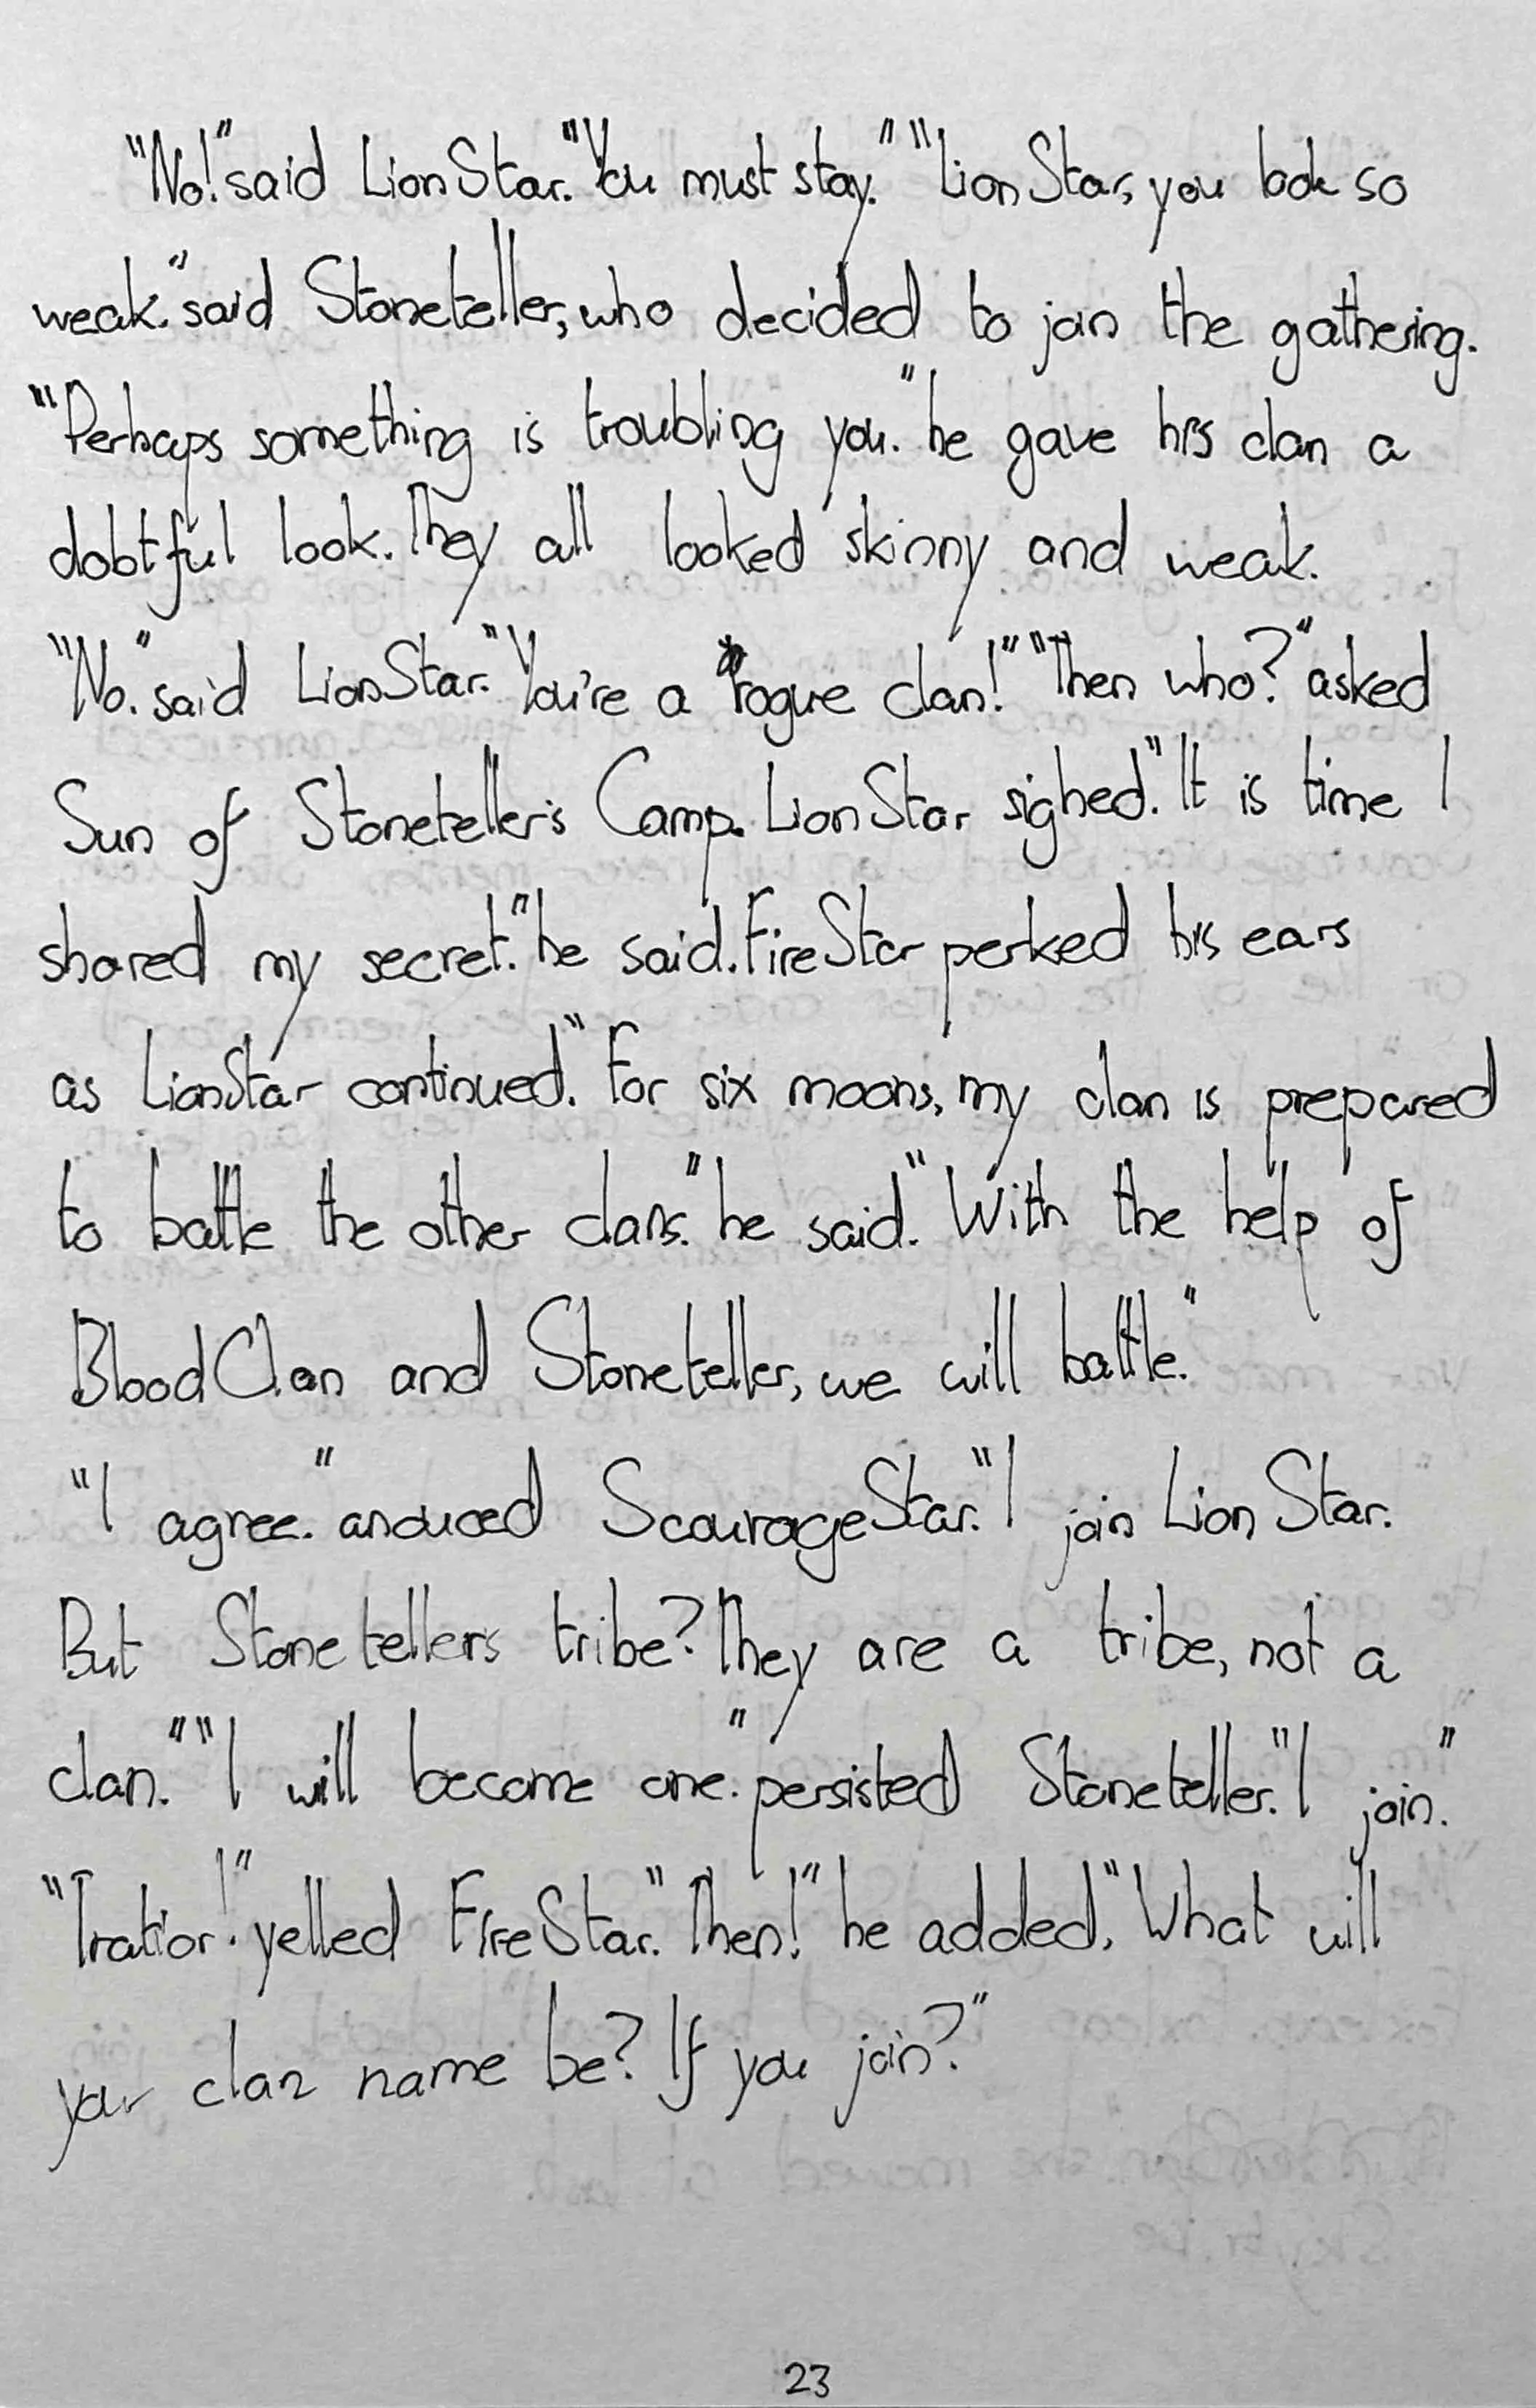 "No!" said LionStar. "You must stay." "LionStar, you look so
weak." said Stoneteller, who decided to join the gathering.
"Perhaps something is troubling you." he gave his clan a
dobtful look. They all looked skinny and weak.
"No." said LionStar. "You're a rogue clan!" "Then who?" asked
Sun of Stoneteller's Camp. LionStar sighed. "It is time I
shared my secret." he said. FireStar perked his ears
as LionStar continued. "For six moons, my clan is prepared
to battle the other clans." he said. "With the help of
BloodClan and Stoneteller, we will battle."
"I agree." anouced ScourageStar. "I join LionStar.
But Stonetellers tribe? They are a tribe, not a
clan." "I will become one." persisted Stoneteller. "I join."
"Traitor!" yelled FireStar. "Then!" he added, "What will
your clan name be? If you join?"
23